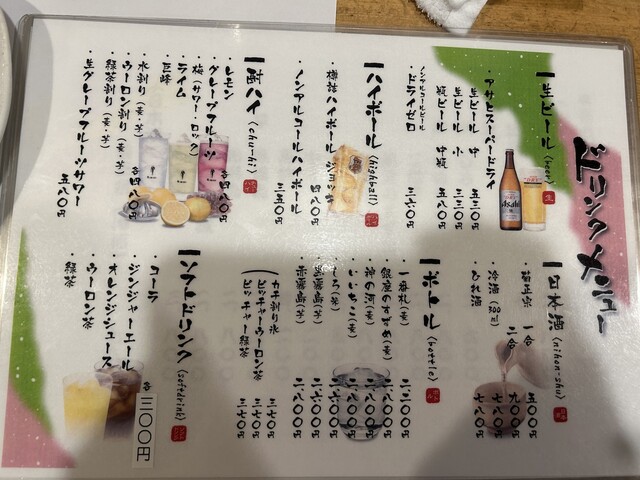 ドリンクメニュー
生ビール (beer)
アサヒスーパードライ
生ビール 中 五三〇円
生ビール 小 三三〇円
瓶ビール 中瓶 五八〇円
ノンアルコールビール
ドライゼロ 三六〇円
ハイボール (highball)
樽詰ハイボール ジョッキ 四八〇円
ノンアルコールハイボール 三五〇円
酎ハイ (chu-hi)
・レモン
・グレープフルーツ
・梅(サワー・ロック)
・ライム
・巨峰
各四八〇円
・水割り(麦・芋)
・ウーロン割り(麦・芋)
・緑茶割り(麦・芋)
各四八〇円
・生グレープフルーツサワー 五八〇円
日本酒 (nihon-shu)
・菊正宗 一合 五〇〇円
二合 九〇〇円
・冷酒(300ml) 七八〇円
・ひれ酒 七八〇円
ボトル (bottle)
・一番札(麦) 二三〇〇円
・銀座のすずめ(麦) 二八〇〇円
・神の河(麦) 二八〇〇円
・いいちこ(麦)
・しろ(米) 二六〇〇円
・黒霧島(芋) 二六〇〇円
・赤霧島(芋) 二八〇〇円
カチ割り氷 三七〇円
ピッチャーウーロン茶 三七〇円
ピッチャー緑茶 三七〇円
ソフトドリンク (softdrink)
・コーラ
・ジンジャーエール
・オレンジジュース
・ウーロン茶
・緑茶
各三〇〇円
Asahi